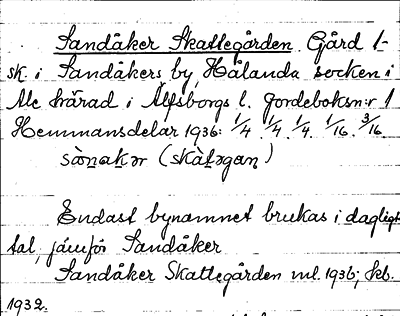 Sandåker Skattegården. Gård 1-
sk. i Sandåkers by, Hålanda socken i
Ale härad i Älfsborgs l. Jordeboksn:r 1
Hemmansdelar 1936: 1/4. 1/4. 1/4. 1/16. 3/16
Endast bynamnet brukas i dagligt
tal, jämför Sandåker
Sandåker Skattegården ml. 1936; Jkb.
1932.